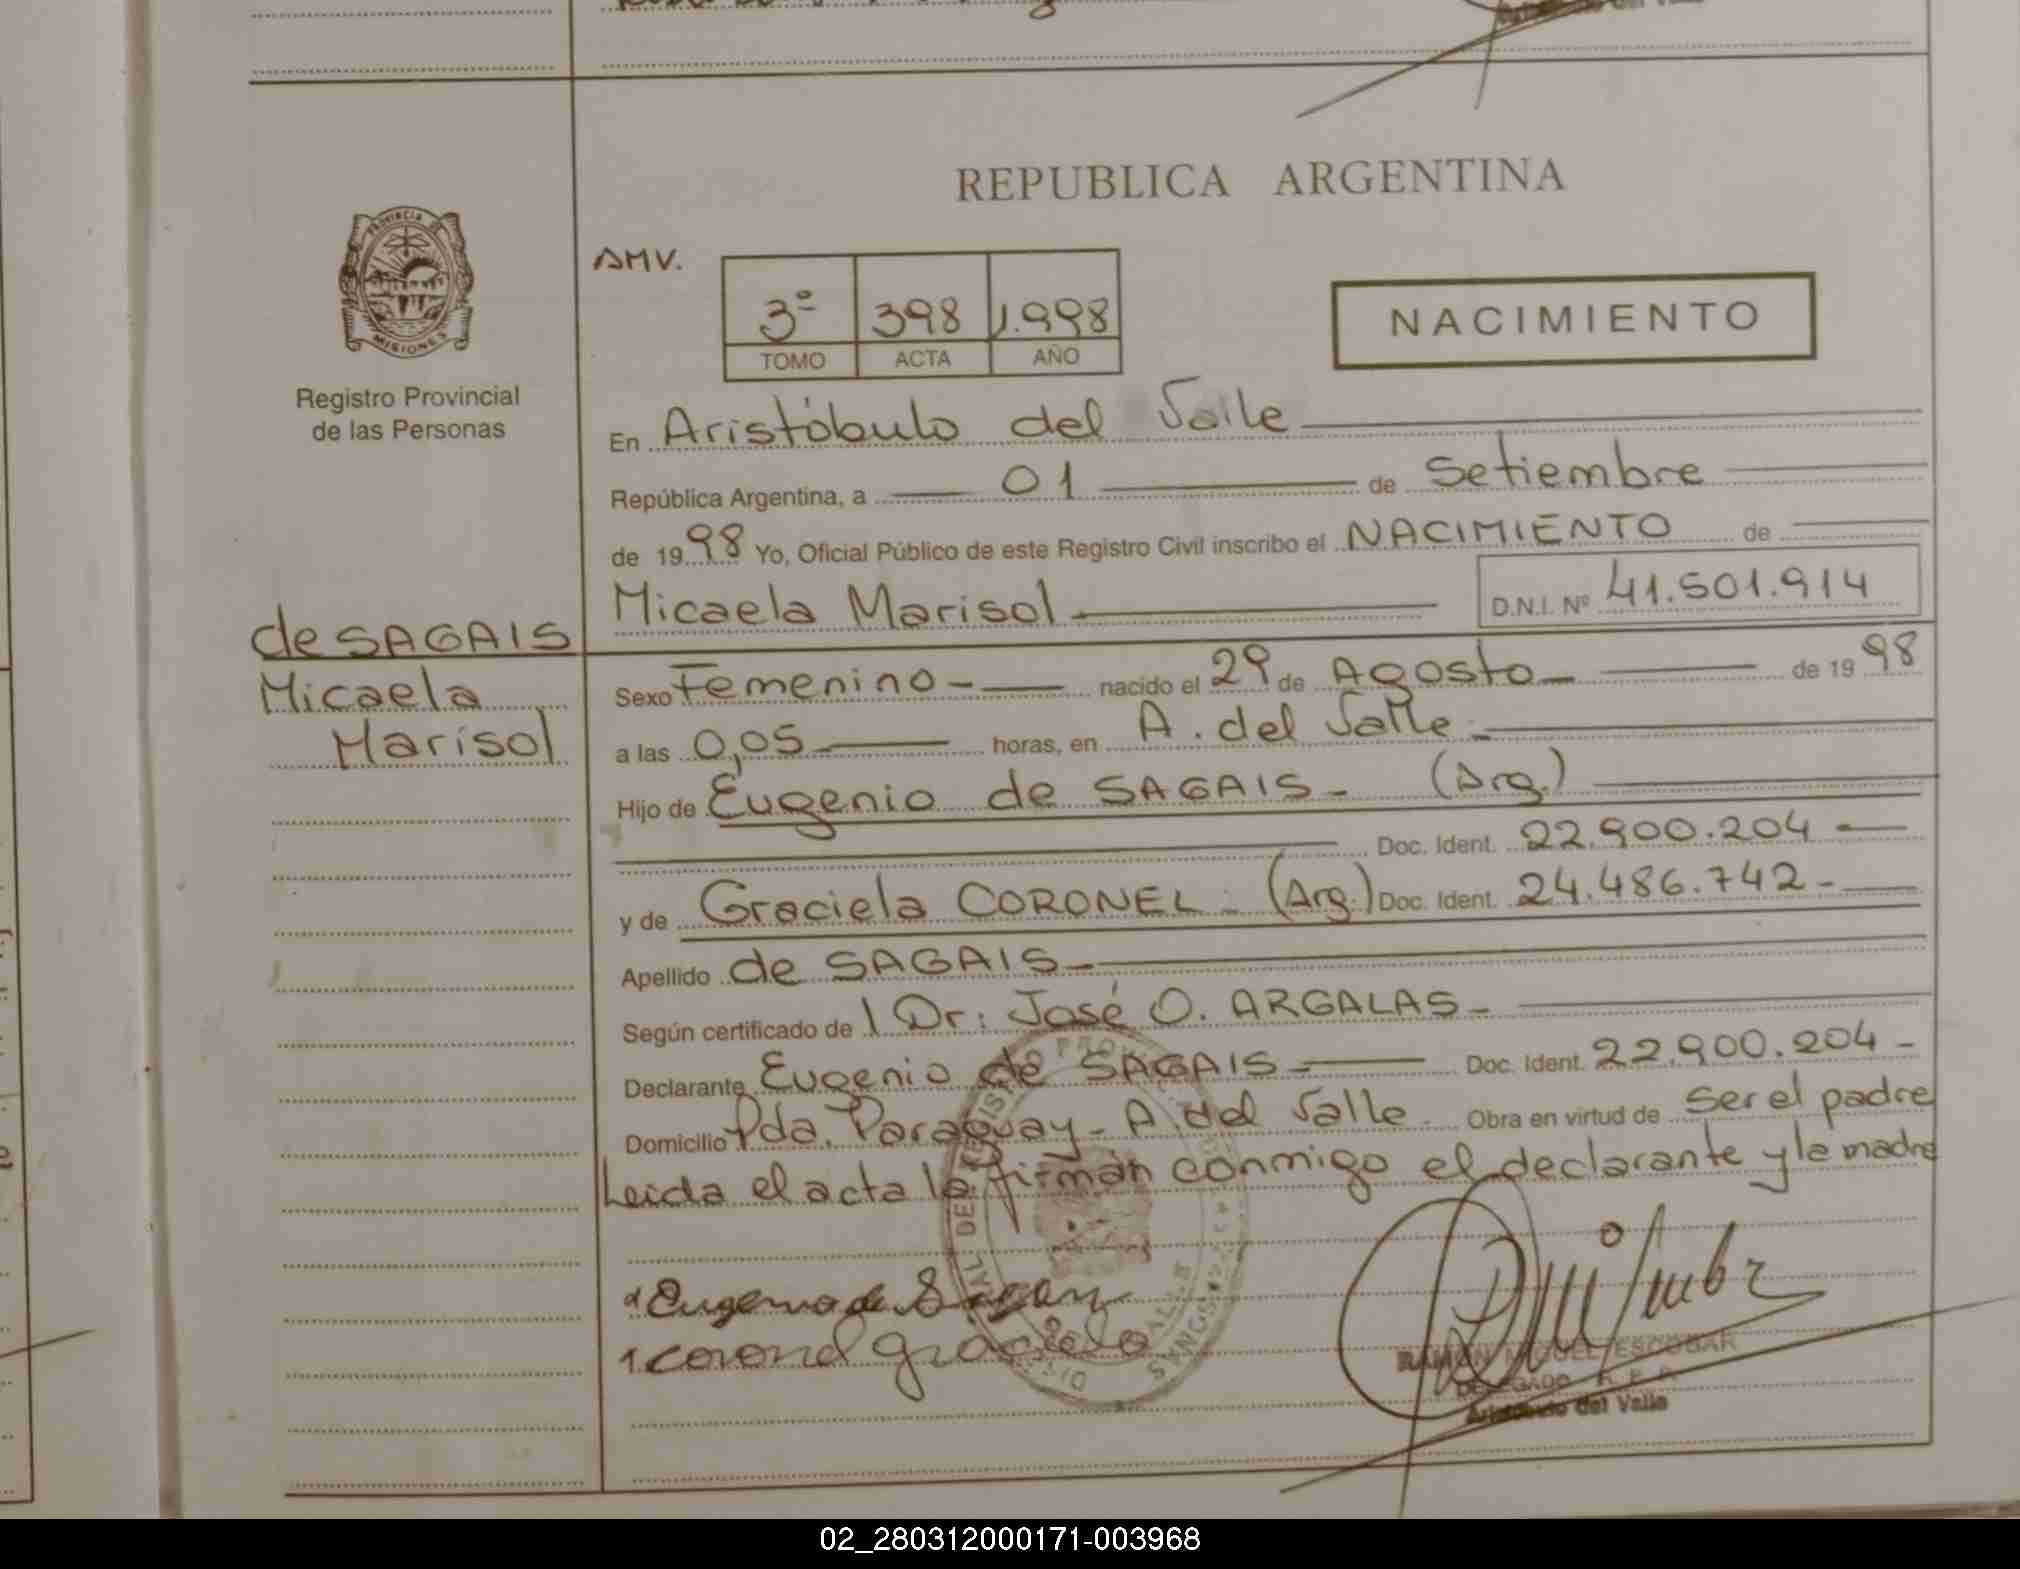 REPUBLICA ARGENTINA
PROVINCIA DE
MISIONES
Registro Provincial
de las Personas
AMV.
3º 398 1.998
TOMO ACTA AÑO
NACIMIENTO
En Aristóbulo del Valle
República Argentina, a 01 de Setiembre
de 1998 Yo, Oficial Público de este Registro Civil inscribo el NACIMIENTO de
Micaela Marisol D.N.I. Nº 41.501.914
de SAGAIS
Micaela
Marisol
Sexo Femenino - nacido el 29 de Agosto de 1998
a las 0,05 horas, en A. del Valle
Hijo de Eugenio de SAGAIS - (Arg.)
Doc. Ident. 22.900.204
y de Graciela CORONEL - (Arg.) Doc. Ident. 24.486.742 -
Apellido de SAGAIS
Según certificado de 1 Dr: José O. ARGALAS -
Declarante Eugenio de SAGAIS Doc. Ident. 22.900.204 -
Domicilio Pda. Paraguay - A. del Valle - Obra en virtud de ser el padre
Leida el acta la firman conmigo el declarante y la madre
Eugenio de
coronel graciela
RAMON MIGUEL ESCOBAR
DELEGADO R. P. P.
Aristóbulo del Valle
02_280312000171-003968